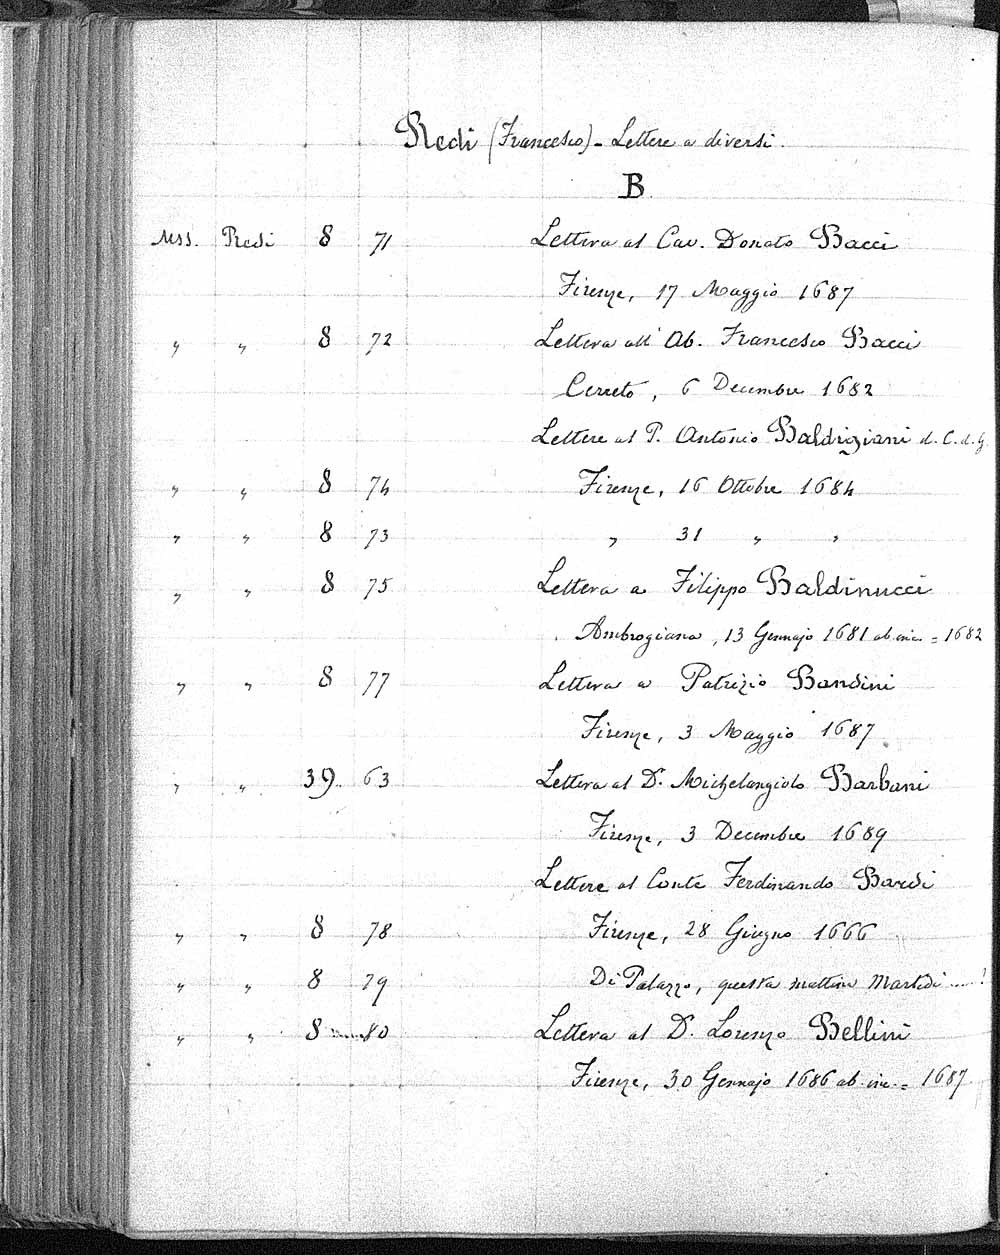 Redi (Francesco) - Lettere a diversi.
B
Mss. Redi 8 71 Lettera al Cav. Donato Bacci
Firenze, 17 Maggio 1687
" " 8 72 Lettera all' Ab. Francesco Bacci
Cerreto, 6 Decembre 1682
Lettere al P. Antonio Baldigiani d. C. d. G.
" " 8 74 Firenze, 16 Ottobre 1684
" " 8 73 " 31 " "
" " 8 75 Lettera a Filippo Baldinucci
Ambrogiana, 13 Gennajo 1681 ab. inc. = 1682
" " 8 77 Lettera a Patrizio Bandini
Firenze, 3 Maggio 1687
" " 39 63 Lettera al D. Michelangiolo Barbani
Firenze, 3 Decembre 1689
Lettere al Conte Ferdinando Bardi
" " 8 78 Firenze, 28 Giugno 1666
" " 8 79 Di Palazzo, questa mattina Martedì .....!
" " 8 ..... 80 Lettera al D. Lorenzo Bellini
Firenze, 30 Gennajo 1686 ab. inc. = 1687